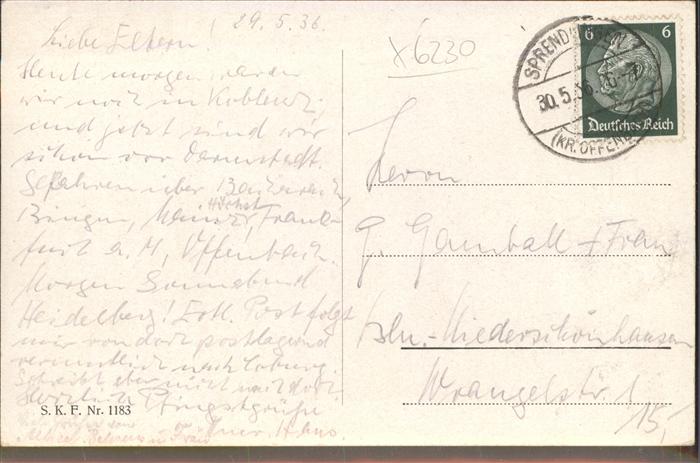 29.5.36
Liebe Eltern!
Heute morgen waren
wir noch in Koblenz,
und jetzt sind wir
schon vor Darmstadt.
Gefahren über Bacharach,
Bingen, Mainz, Höchst, Frank-
furt a. M, Offenbach.
Morgen Sonnabend
Heidelberg! Evtl. Post folgt
mir von dort postlagernd
vermutlich nach Coburg.
Schreibt aber nicht nach dort
Herzliche Pfingstgrüße
Euer Hans
S. K. F. Nr. 1183
x6230
SPRENDLINGEN
30.5.36
(KR. OFFENB
6 6
Deutsches Reich
Herrn
G. Gamball + Frau
Bln.-Niederschönhausen
Wrangelstr. 1
15,-